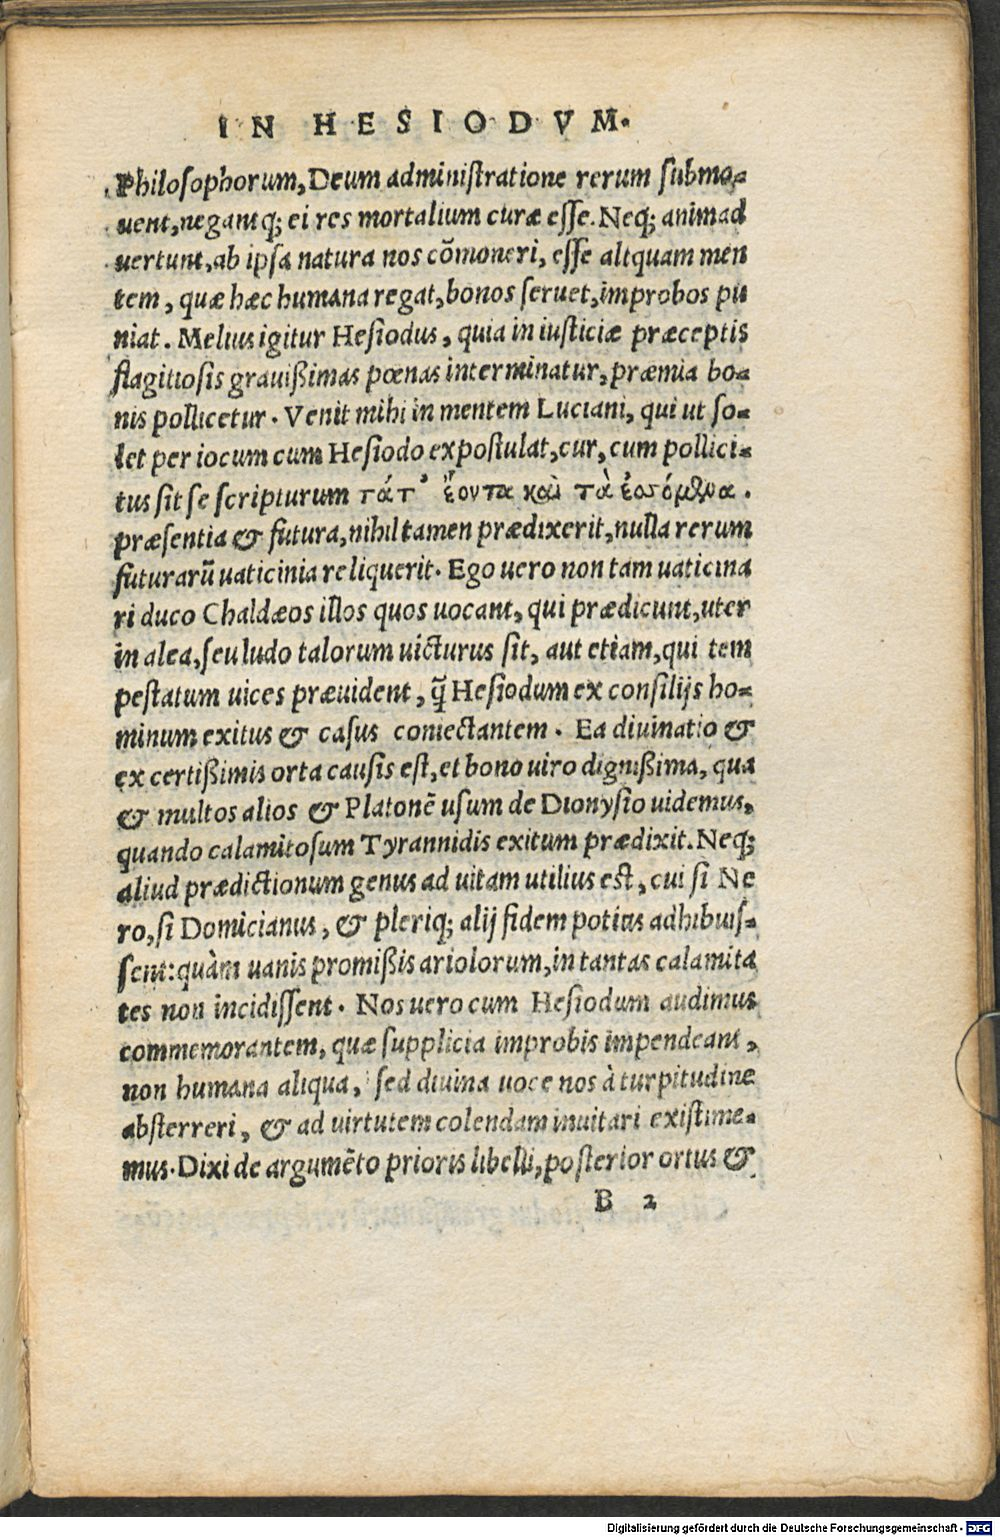 IN HESIODVM.
Philosophorum, Deum administratione rerum submo-
uent, negantq; ei res mortalium curæ esse. Neq; animad
uertunt, ab ipsa natura nos cõmoneri, esse aliquam men
tem, quæ hæc humana regat, bonos seruet, improbos pu
niat. Melius igitur Hesiodus, quia in iusticiæ præceptis
flagitiosis grauißimas pœnas interminatur, præmia bo-
nis pollicetur. Venit mihi in mentem Luciani, qui ut so-
let per iocum cum Hesiodo expostulat, cur, cum pollici-
tus sit se scripturum τάτ' ἔοντα καὶ τὰ ἐσόμενα.
præsentia & futura, nihil tamen prædixerit, nulla rerum
futurarũ uaticinia reliquerit. Ego uero non tam uaticina
ri duco Chaldæos illos quos uocant, qui prædicunt, uter
in alea, seu ludo talorum uicturus sit, aut etiam, qui tem
pestatum uices præuident, q̃ Hesiodum ex consilijs ho-
minum exitus & casus coniectantem. Ea diuinatio &
ex certißimis orta causis est, et bono uiro dignißima, qua
& multos alios & Platonẽ usum de Dionysio uidemus,
quando calamitosum Tyrannidis exitum prædixit. Neq;
aliud prædictionum genus ad uitam utilius est, cui si Ne
ro, si Domicianus, & pleriq; alij fidem potius adhibuis-
sent: quàm uanis promißis ariolorum, in tantas calamita
tes non incidissent. Nos uero cum Hesiodum audimus
commemorantem, quæ supplicia improbis impendeant,
non humana aliqua, sed diuina uoce nos à turpitudine
absterreri, & ad uirtutem colendam inuitari existime-
mus. Dixi de argumẽto prioris libelli, posterior ortus &
B 2
Digitalisierung gefördert durch die Deutsche Forschungsgemeinschaft - DFG